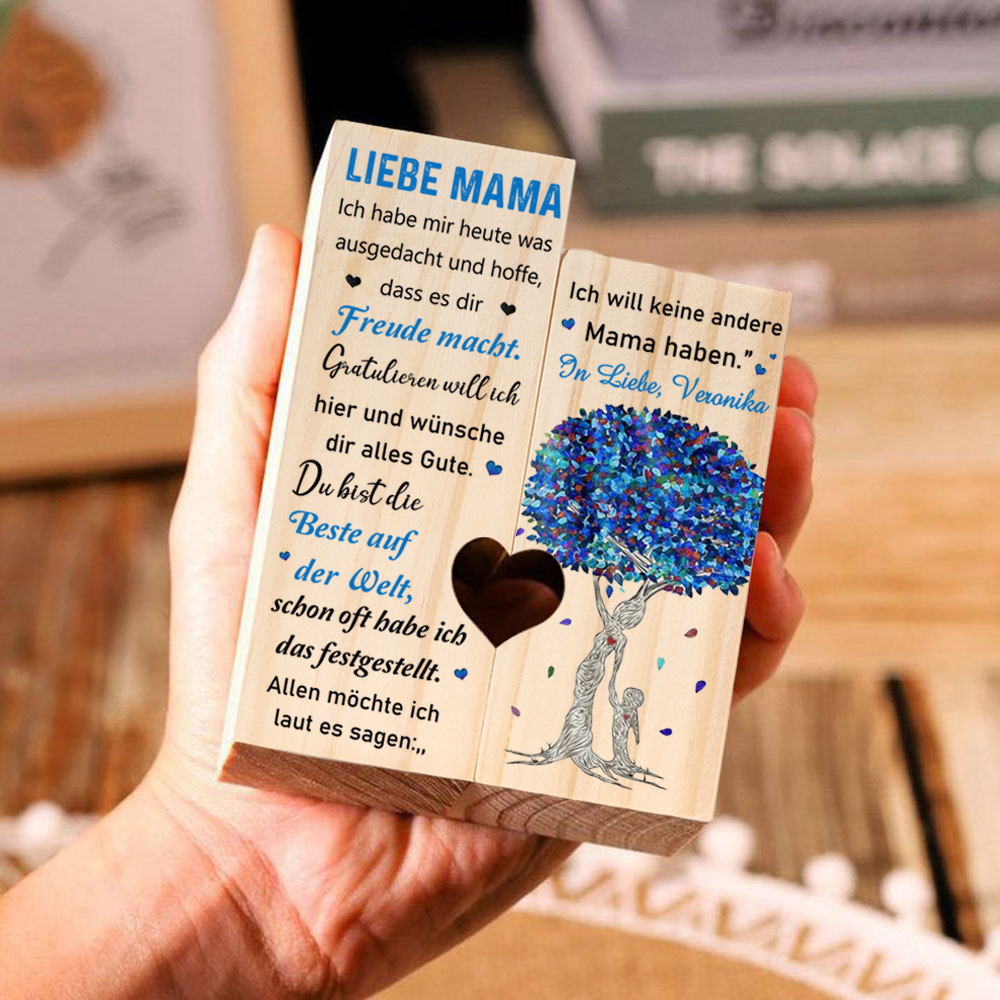 LIEBE MAMA
Ich habe mir heute was
ausgedacht und hoffe,
dass es dir
Freude macht.
Gratulieren will ich
hier und wünsche
dir alles Gute.
Du bist die
Beste auf
der Welt,
schon oft habe ich
das festgestellt.
Allen möchte ich
laut es sagen:,,
Ich will keine andere
Mama haben.”
In Liebe, Veronika
THE SOLACE